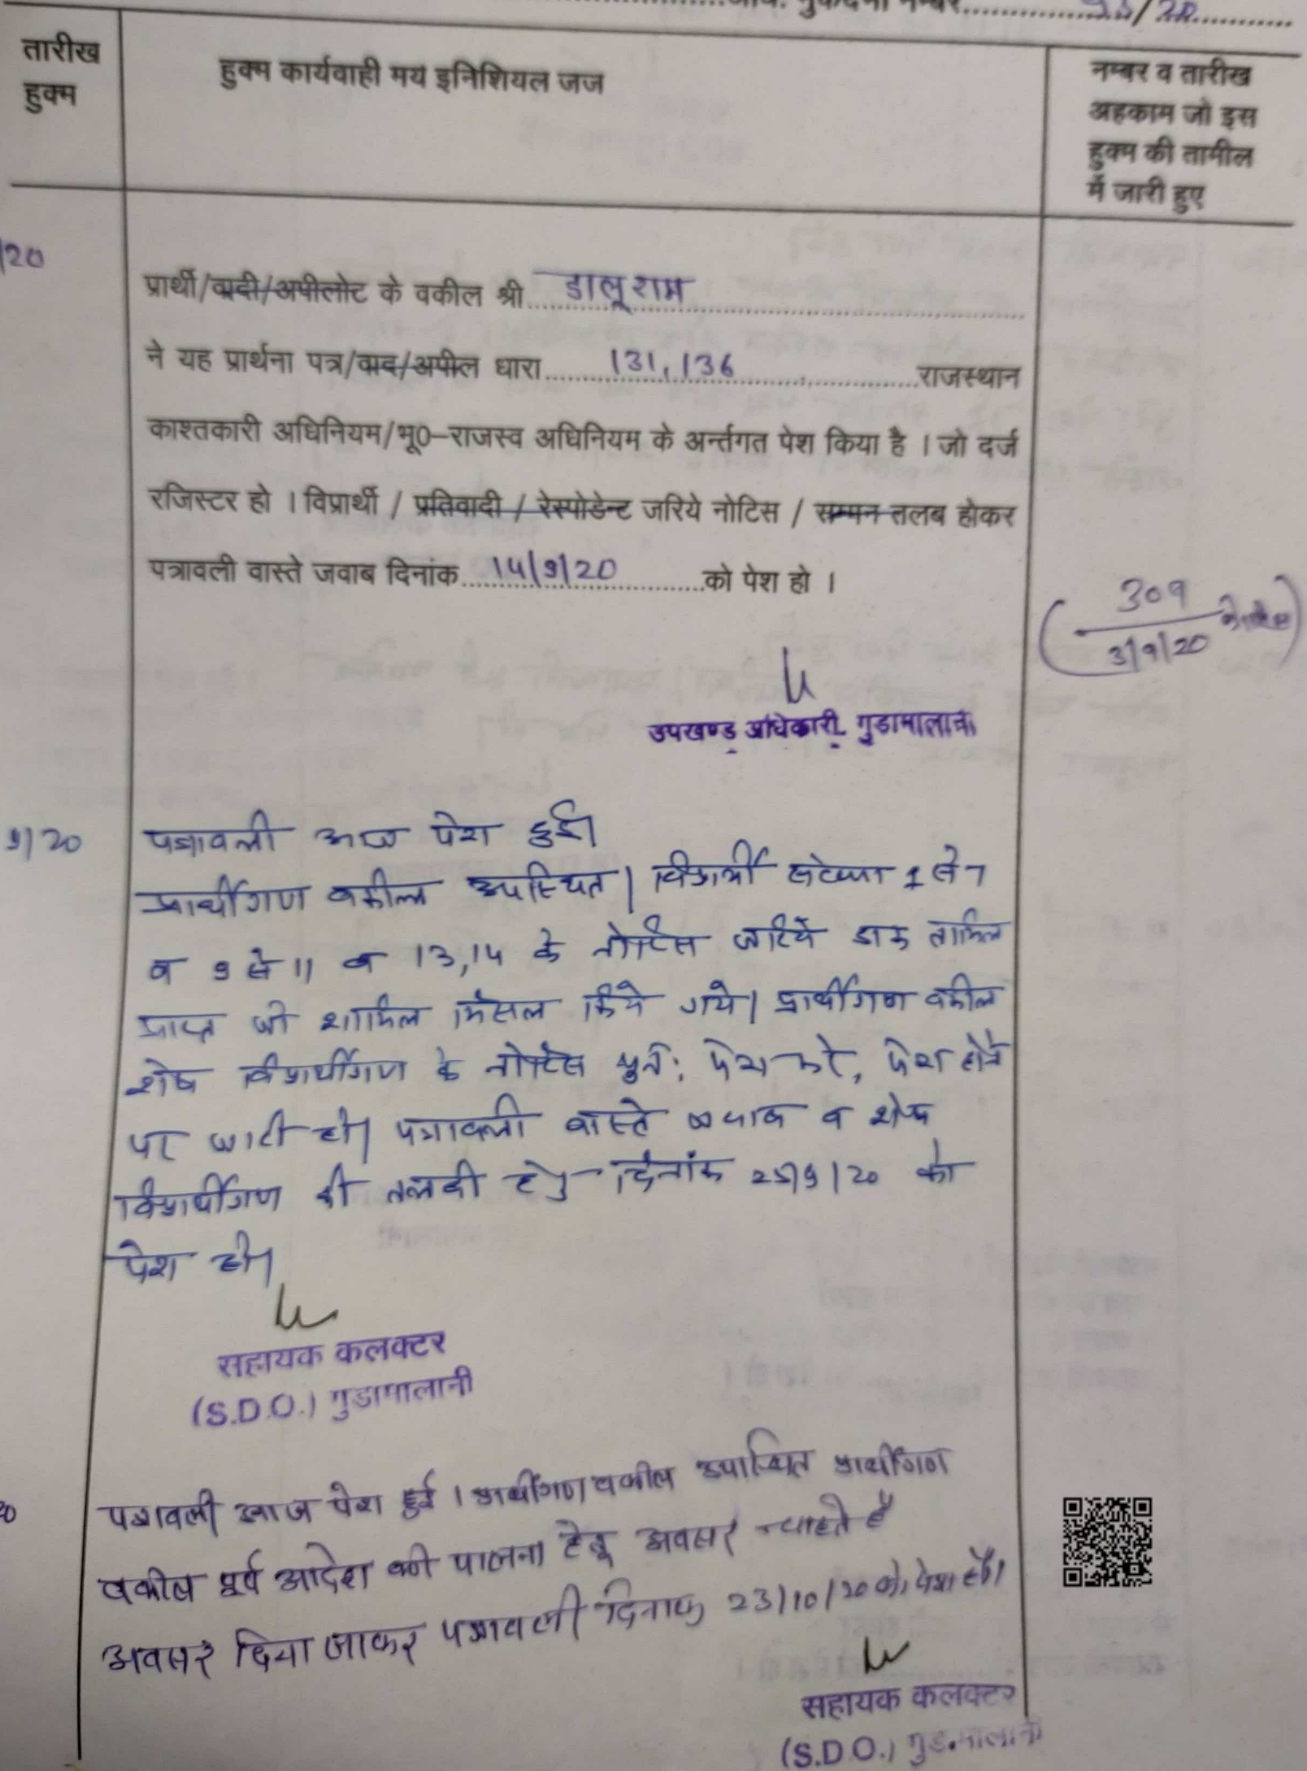 मुकदमा नम्बर
तारीख
हुक्म
हुक्म कार्यवाही मय इनिशियल जज
नम्बर व तारीख
अहकाम जो इस
हुक्म की तामील
में जारी हुए
/20
प्रार्थी/वादी/अपीलोट के वकील श्री डालूराम
ने यह प्रार्थना पत्र/वाद/अपील धारा 131,136 राजस्थान
काश्तकारी अधिनियम/भू0-राजस्व अधिनियम के अर्न्तगत पेश किया है । जो दर्ज
रजिस्टर हो । विप्रार्थी / प्रतिवादी / रेस्पोडेन्ट जरिये नोटिस / सम्मन तलब होकर
पत्रावली वास्ते जवाब दिनांक 14/9/20 को पेश हो ।
309
3/9/20
उपखण्ड अधिकारी, गुडामालानी
9/20
पत्रावली आज पेश हुई।
प्रार्थीगण वकील उपस्थित। विप्रार्थी संख्या 1 से 7
व 9 से 11 व 13,14 के नोटिस जरिये डाक तामिल
प्राप्त जो शामिल मिसल किये गये। प्रार्थीगण वकील
शेष विप्रार्थीगण के नोटिस पुनः पेश करे, पेश होने
पर जारी हो। पत्रावली वास्ते जवाब व शेष
विप्रार्थीगण की तलबी हेतु दिनांक 25/9/20 को
पेश हो।
सहायक कलक्टर
(S.D.O.) गुडामालानी
पत्रावली आज पेश हुई । प्रार्थीगण वकील उपस्थित प्रार्थीगण
वकील पूर्व आदेश की पालना हेतू अवसर चाहते है
अवसर दिया जाकर पत्रावली दिनांक 23/10/20 को पेश हो।
सहायक कलक्टर
(S.D.O.) गुडामालानी